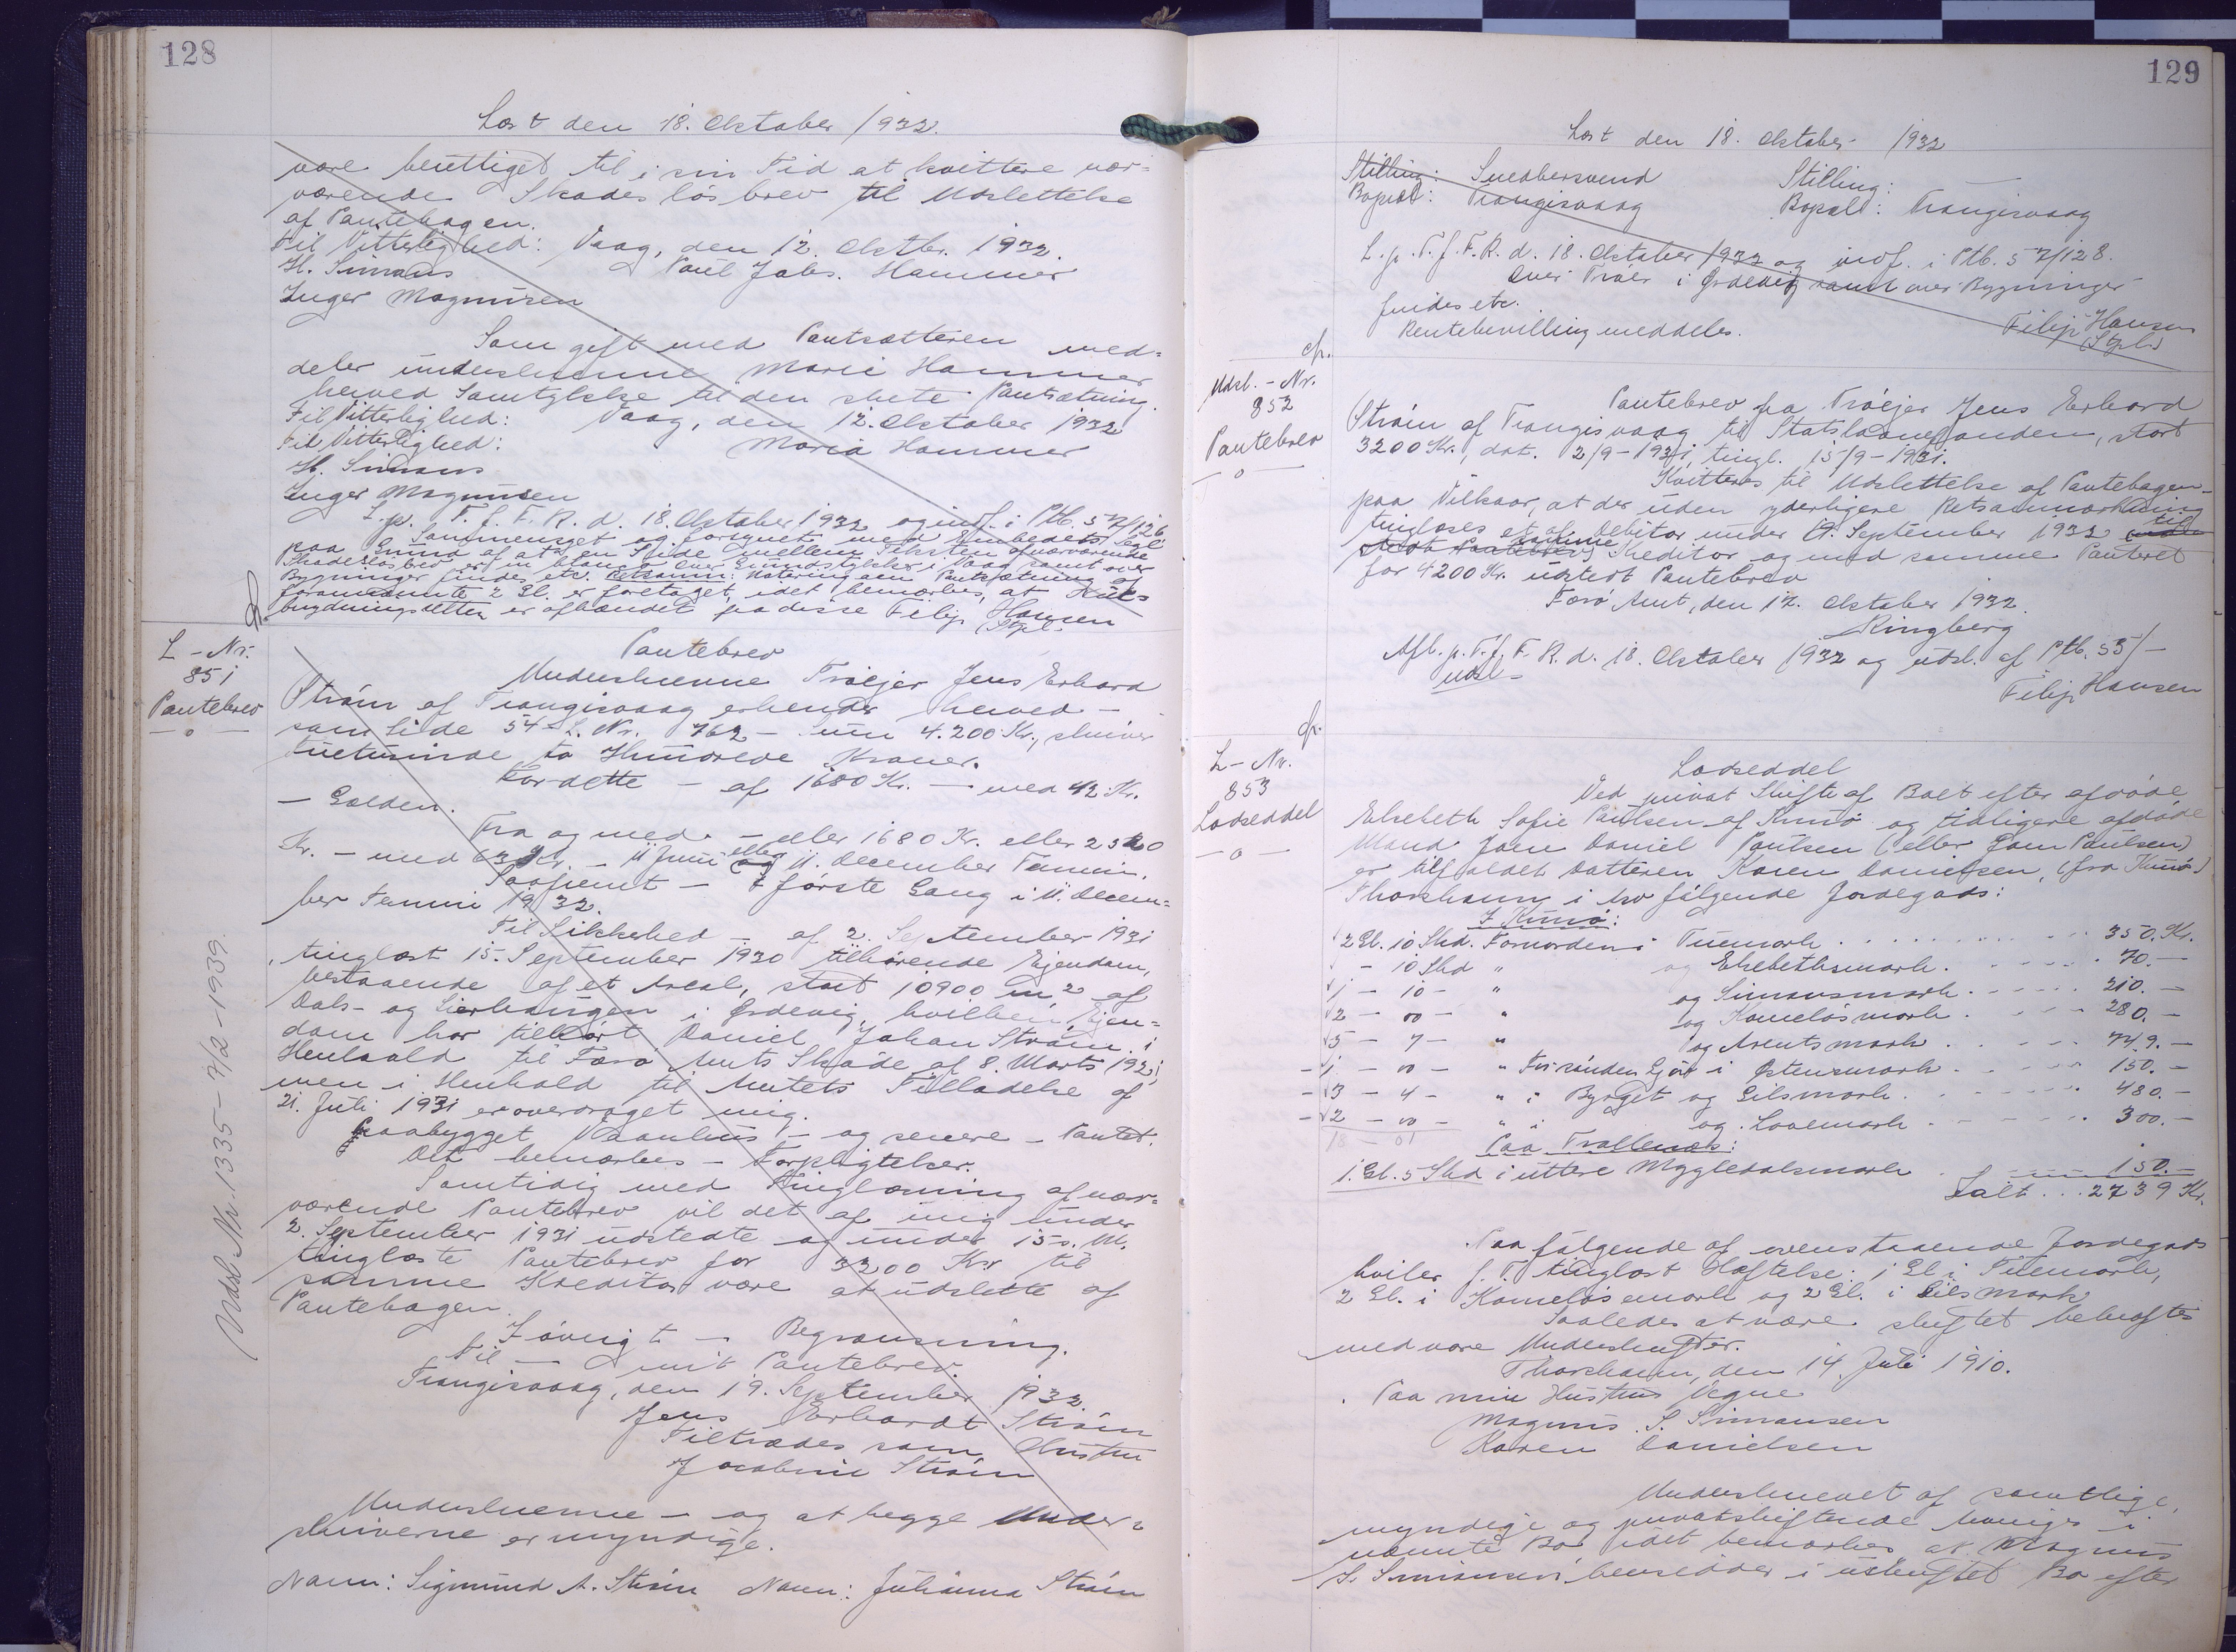 128
Læst den 18. Oktober 1932.
være berettiget til i sin Tid at kvittere nær-
værende Skadesløsbrev til Udslettelse
af Pantebogen.
Til Vitterlighed: Vaag, den 12. Oktbr. 1932.
H. Simans Poul Johs. Hammer
Inger Magnusen
Som gift med Pantsætteren med-
deler underskrevne Maria Hammer
herved Samtykke til den skete Pantsætning.
Til Vitterlighed: Vaag, den 12. Oktober 1932
Til Vitterlighed: Maria Hammer
H. Simans
Inger Magnusen
L. p. T. f. F. R. d. 18. Oktober 1932 og indf. i Ptb. 57/126
Sammensyet og forsynet med Embedets Segl
paa Grund af at en Side mellem Teksten af nærværende
Skadesløsbrev er in blanco Over Grundstykker i Vaag samt over
Bygninger findes etc. Retsanm: Notering om Pantsætning af
forannævnte 2 Gl. er foretaget, idet bemærkes, at Hus-
bygningsretten er afhændet fra disse Filip Hansen
(Stpl.
L-Nr.
851
Pantebrev
—o—
Pantebrev
Underskrevne Trøejer Jens Erhard
Strøm af Trangisvaag erkender herved —
som Side 54 L. Nr. 762 — um 4.200 Kr., skriver
fire tusinde to Hundrede Kroner.
For dette — af 1680 Kr. — med 42 Kr.
— Gælden.
Fra og med — eller 1680 Kr. eller 2520
Kr. — med 63 Kr. — 11 Juni eller og 11. December Termin.
Paafremt — første Gang i 11. Decem-
ber Termin 1932.
Til Sikkerhed — af 2. September 1931
tinglæst 15. September 1930 tilhørende Ejendom,
bestaaende af et Areal, stort 10900 m² af
Dals- og Lierhaugen i Ørdevig, hvilken Ejen-
dom har tilhørt Daniel Johan Strøm i
Henhold til Færø Amts Skøde af 8. Marts 1921,
men i Henhold til Amtets Tilladelse af
21. Juli 1931 er overdraget mig.
Paabygget Vaanhus — og senere — Pantet.
Det bemærkes — Forpligtelser.
Samtidig med Tinglæsning af nær-
værende Pantebrev vil det af mig under
2. September 1931 udstedte og under 15. s. M.
tinglæste Pantebrev for 3200 Kr til
samme Kreditor være at udslette af
Pantebogen.
Iøvrigt — Begrænsning.
Til — mit Pantebrev.
Trangisvaag, den 19. September 1932.
Jens Erhardt Strøm
Tiltrædes som Hustru
Jacobine Strøm
Underskrevne — og at begge Under-
skriverne er myndige.
Navn: Sigmund A. Strøm Navn: Julianna Strøm
Udsl. Nr. 1335 - 7/2 - 1939.
129
Læst den 18. Oktober 1932
Stilling: Snedkersvend Stilling: —
Bopæl: Trangisvaag Bopæl: Trangisvaag
L. p. T. f. F. R. d. 18. Oktober 1932 og indf. i Ptb. 57/128.
Over Trøer i Ørdevig samt over Bygninger
findes etc.
Rentebevilling meddeles. Filip Hansen
(Stpl.)
cfr.
Udsl.-Nr.
852
Pantebrev
—o—
Pantebrev fra Trøejer Jens Erhard
Strøm af Trangisvaag til Statslaanefonden, stort
3200 Kr., dat. 2/9-1931, tingl. 15/9-1931.
Kvitteres til Udslettelse af Pantebogen
paa Vilkaar, at der uden yderligere Retsanmærkning
tinglæses et af Debitor under 19. September 1932 til
stedt Pantebrev samme Kreditor og med samme Panteret
for 4200 Kr. udstedt Pantebrev
Færø Amt, den 17. Oktober 1932.
Ringberg
Afl. p. T. f. F. R. d. 18. Oktober 1932 og udsl. af Ptb. 55/—
udsl— Filip Hansen
cfr.
L-Nr.
853
Lodseddel
—o—
Lodseddel
Ved privat Skifte af Boet efter afdøde
Elsebeth Sofie Poulsen af Kunø og tidligere afdøde
Mand Joen Daniel Poulsen (eller Joen Poulsen)
er tilfaldet Datteren Karen Danielsen, (fra Kunø)
Thorshavn i Arv følgende Jordegods:
I Kunø:
2 Gl. 10 Skd. Fornorden i Tuemark . . . . 350. Kr.
" - 10 Skd " og Elsebethsmark . . . . 70.—
1 - 10 - " og Simansmark . . . . 210.—
2 - 00 - " og Komeløsmark . . . . 280.—
5 - 7 - " og Arentsmark . . . . 749.—
1 - 00 - " For sønden Gjov i Østensmark . . . . 150.—
3 - 4 - " i Bysget og Gilsmark . . . . 480.—
2 - 00 - " " og Lovemark . . . . 300.—
18 - 01
Paa Trøllenæs:
1. Gl. 5 Skd i uttere Myggledalsmark . . . . 150.—
Ialt . . . 2739 Kr.
Paa følgende af ovenstaaende Jordegods
hviler f. T. tinglæst Hæftelse: 1 Gl i Tuemark,
2 Gl. i Komeløsemark og 2 Gl. i Gilsmark
Saaledes at være skiftet bekræftes
med vore Underskrifter.
Thorshavn, den 14. Juli 1910.
Paa min Hustrus Vegne
Magnus S. Simonsen
Karen Danielsen
Underskrevet af samtlige,
myndige og privatskiftende Arvinger i
nævnte Bo idet bemærkes at Magnus
S. Simonsen hensidder i uskiftet Bo efter